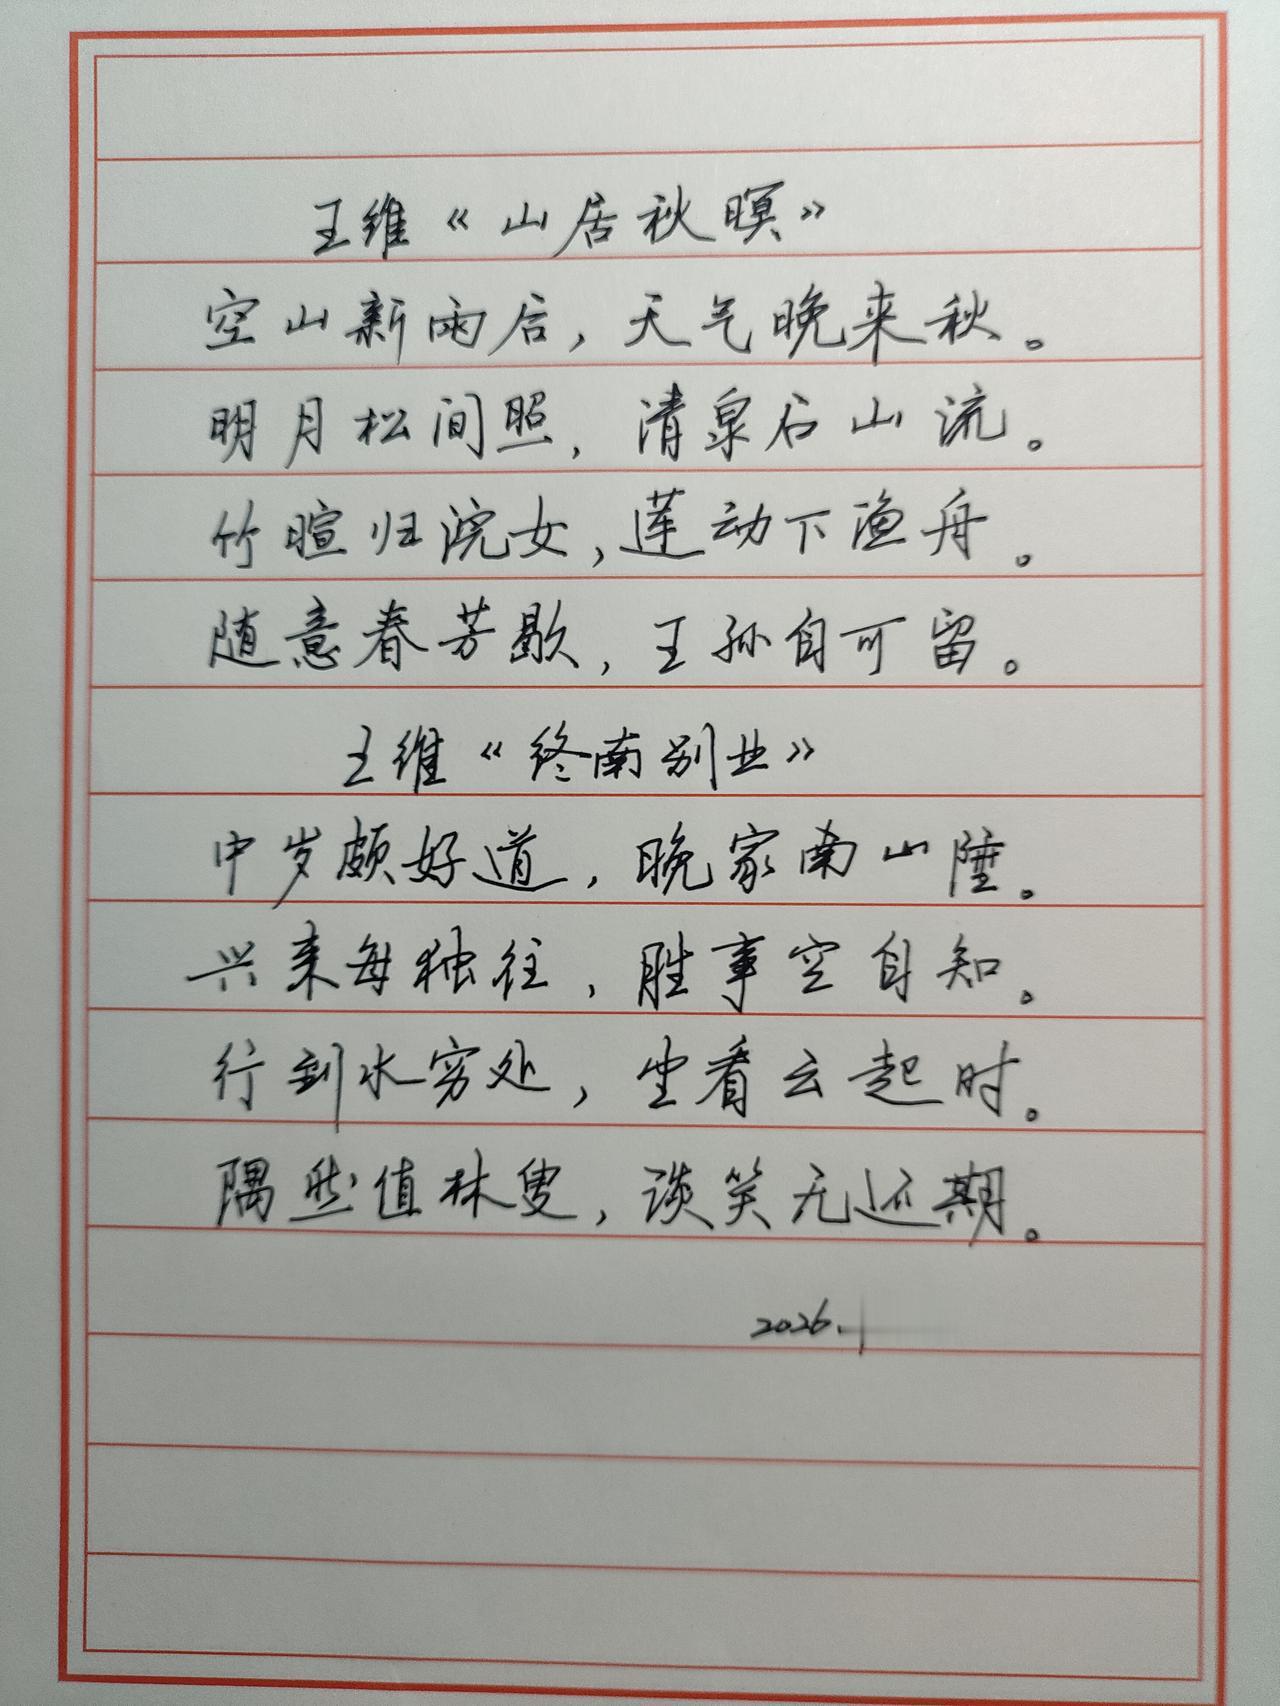 王维《山居秋暝》
空山新雨后，天气晚来秋。
明月松间照，清泉石山流。
竹暄归浣女，莲动下渔舟。
随意春芳歇，王孙自可留。
王维《终南别业》
中岁颇好道，晚家南山陲。
兴来每独往，胜事空自知。
行到水穷处，坐看云起时。
隅然值林叟，谈笑无还期。
2026.